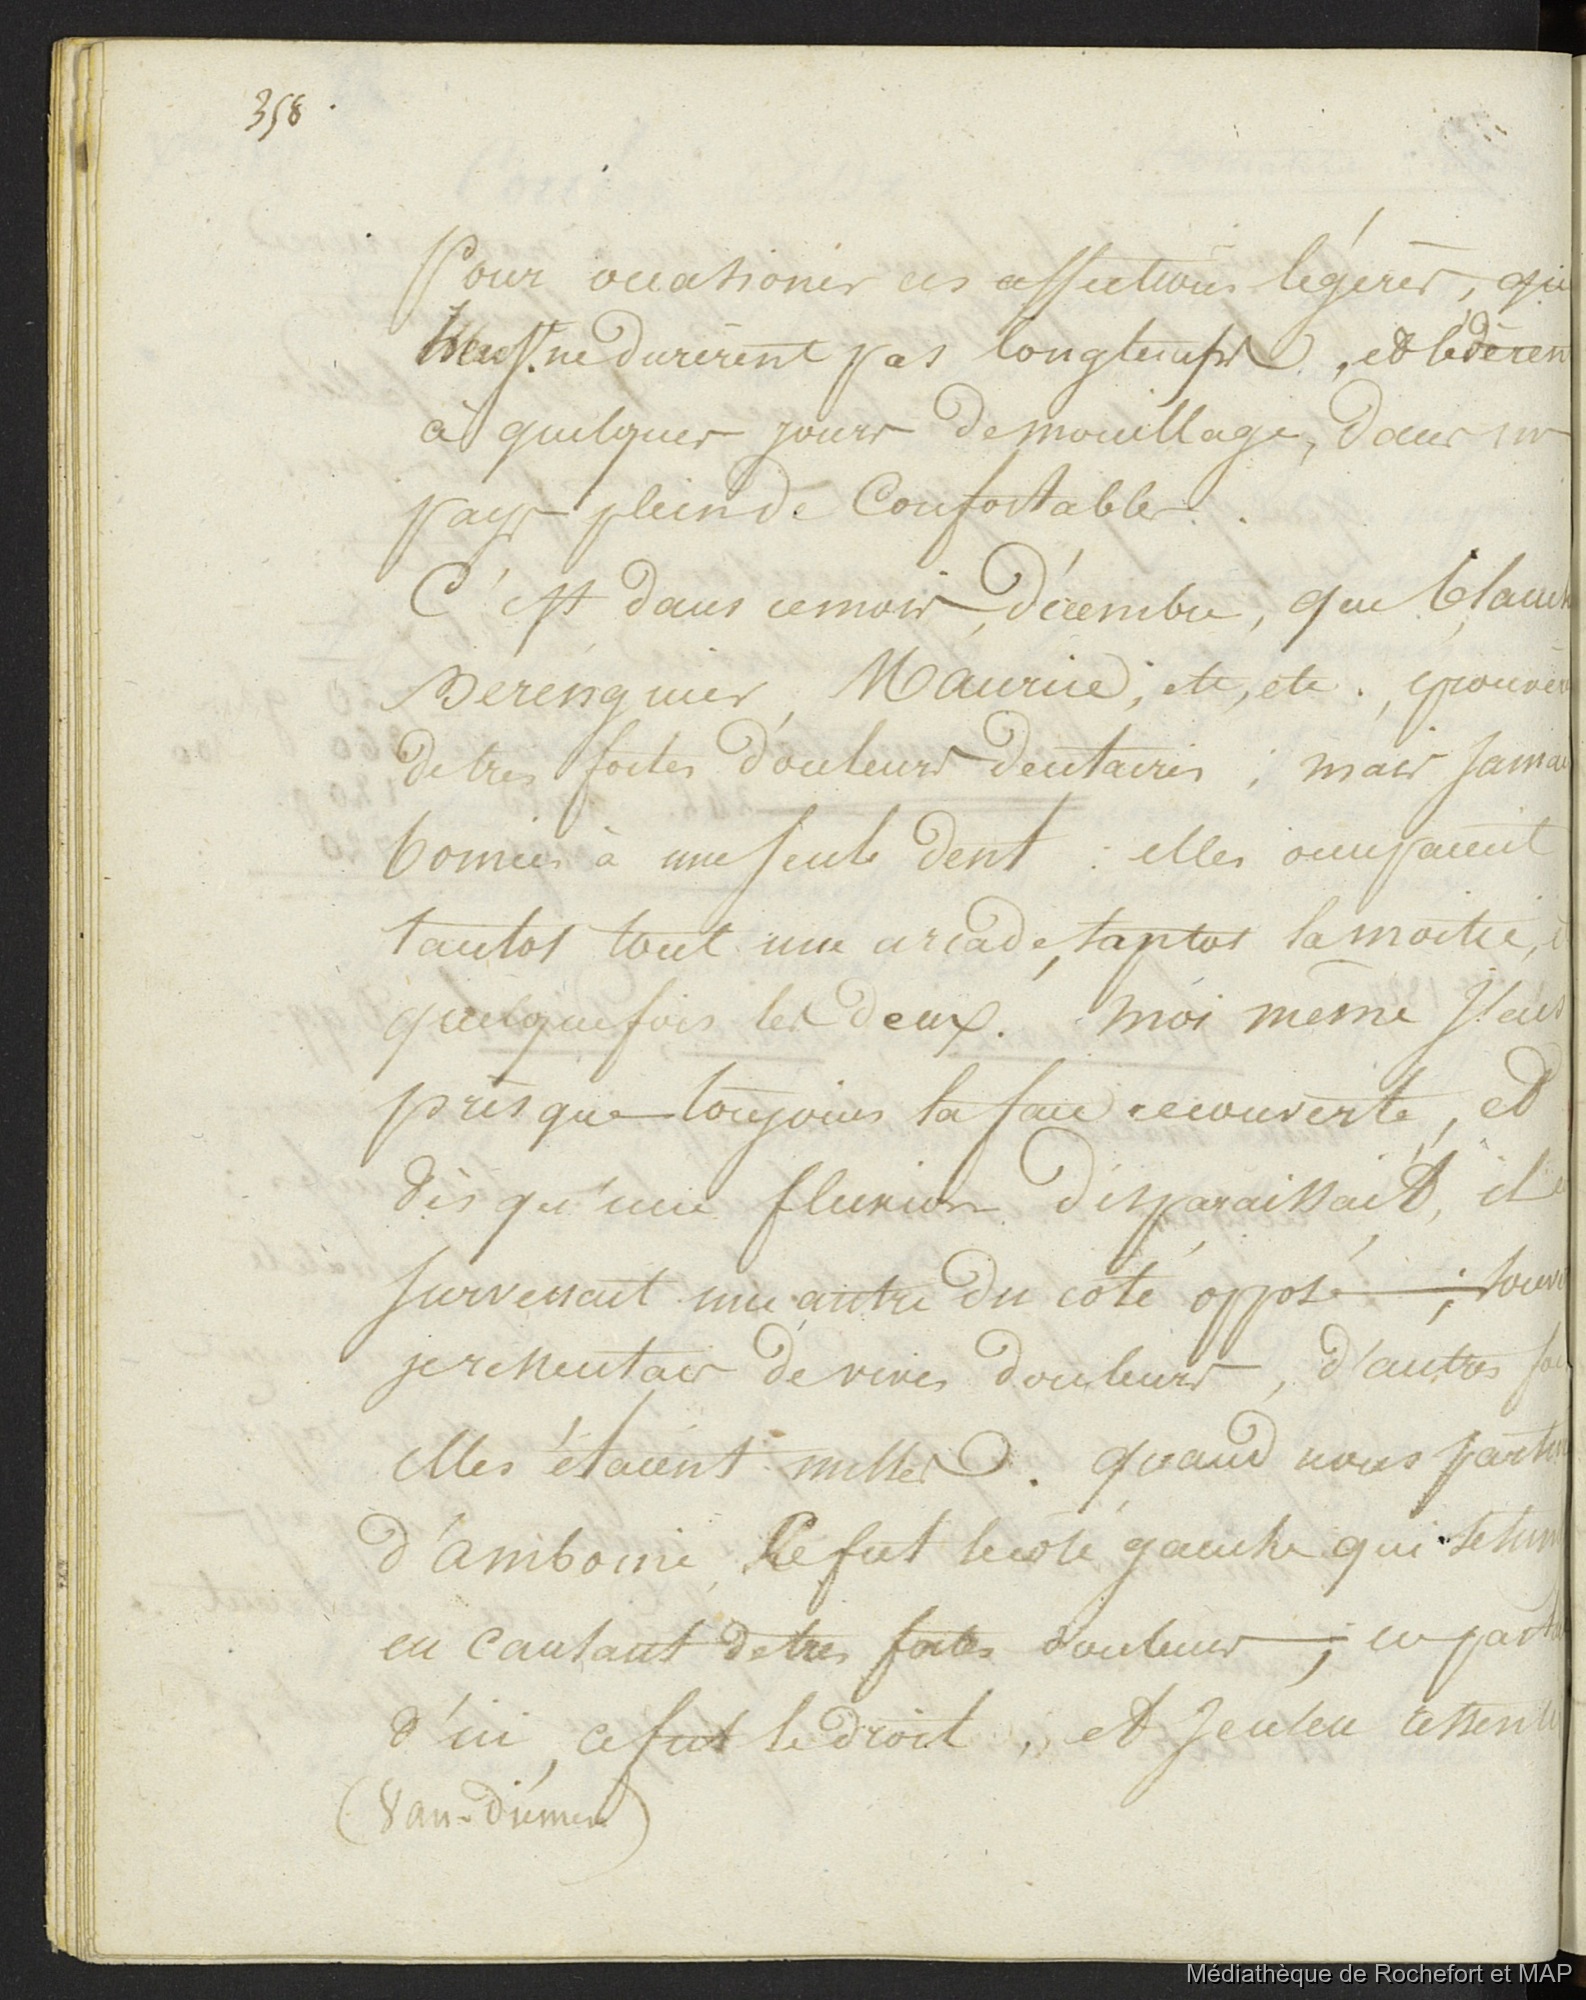 358.
Pour occasioner ces affections légères, qui
ne durèrent pas longtemps, et cédèren
à quelques jours de mouillage, dans un
pays plein de Confortables.
C'est dans ce mois, décembre, que Clauch
Berenguier, Maurice, etc, etc., eprouvèr
de tres fortes douleurs dentaires; mais jamai
bornées à une seule dent: elles occupaient
tantot tout une arcade, tantot la moitié, e
quelquefois les deux. moi même j'eus
presque toujours la face recouverte, et
dès qu'une fluxion disparaissait, il e
survenait une autre du coté opposé; souve
je ressentais de vives douleurs, d'autres foi
elles étaient nulles. quand nous partim
d'amboine, Ce fut le coté gauche qui se tum
en causant de tres fortes douleurs; en parta
d'ici, ce fut le droit, et j'eus en ressenti
(Van-Diemen)
Médiathèque de Rochefort et MAP